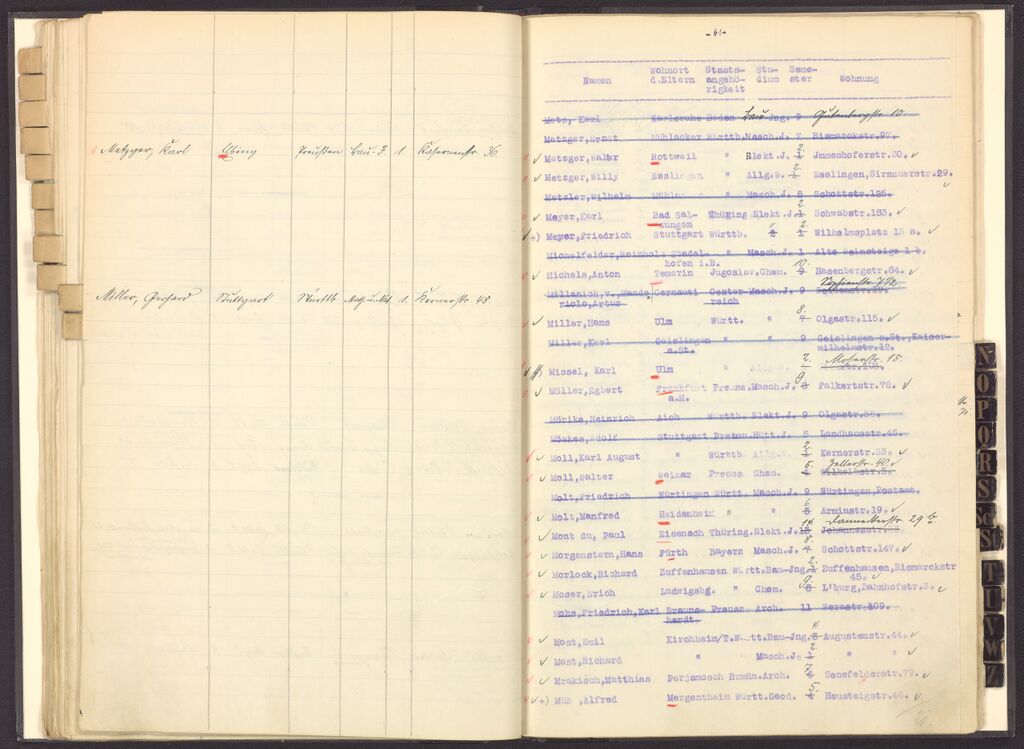 Metzger, Karl Elbing Preußen Bau-J. 1. Kasernenstr. 36
Miller, Gerhard Stuttgart Württb. 1. Kernerstr. 48
-61-
Namen Wohnort d.Eltern Staats-angehö-rigkeit Stu-dium Seme-ster Wohnung
Metz, Karl Karlsruhe Baden Bau-Jng. 9 Gutenbergstr. 10.
Metzger,Ernst Mühlacker Württb.Masch.J. 7 Bismarckstr.97.
Metzger,Walter Rottweil " Elekt.J. 1 2. Jmmenhoferstr.30. ✓
Metzger,Willy Esslingen " Allg.W. 1 2. Esslingen,Sirnauerstr.29.
Metzler,Wilhelm Masch.J. 8 Schottstr.125.
Meyer,Karl Bad Sal- Thüring.Elekt.J.1 2. Schwabstr.183. ✓
zungen
+) Meyer,Friedrich Stuttgart Württb. " 1 2. Wilhelmsplatz 13 a. ✓
Michelfelder,Reinhold Stadel- " Masch.J. 1 Alte Weinsteige 1 b.
hofen i.B.
Michels,Anton Temerin Jugoslaw.Chem. 9 10. Hasenbergstr.84. ✓
Millanich,v.,Mande Cernauti Oester- Masch.J. 9
riolo,Artur reich
Miller,Hans Ulm Württ. " 4 8. Olgastr.115. ✓
Miller,Karl Geislingen " " 9 Geislingen a.St.,Kaiser-
a.St. wilhelmstr.12.
Missel, Karl Ulm " Allg. 2. Moserstr. 15.
Möller,Egbert Frankfurt Preuss.Masch.J. 8 9. Falkertstr.78. ✓
a.M.
Mörike,Heinrich Aich Württb. Elekt.J. 9 Olgastr.
Mönkes,Adolf Stuttgart Preuss.Hütt.J. 5 Landhausstr.45.
Moll,Karl August " Württb. Allg. 1 2. Kernerstr.33. ✓
Moll,Walter Weimar Preuss. Chem. 4 5. Zellerstr. 40. ✓
Molt,Friedrich Nürtingen Württ. Masch.J. 9 Nürtingen,Postamt.
Molt,Manfred Heidenheim " " 5 6. Arminstr.19. ✓
Mont du, Paul Eisenach Thüring.Elekt.J. 14. Danneckerstr. 29 b.
Morgenstern,Hans Fürth Bayern Masch.J. 4 8. Schottstr.147. ✓
Morlock,Richard Zuffenhausen Württ.Bau-Jng.1 2. Zuffenhausen,Bismarckstr
45. ✓
Moser,Erich Ludwigsbg. " Chem. 8 9. L'burg,Bahnhofstr.3. ✓
Mohs,Friedrich,Karl Brauns- Preuss. Arch. 11 Werastr.
hardt.
Most,Emil Kirchheim/T.Württ.Bau-Jng.3 4 Augustenstr.44. ✓
Most,Richard " Masch.J. 1 2 " "
Mrakisch,Matthias Perjamosch Rumän.Arch. 6 7. Senefelderstr.79. ✓
+) Müh ,Alfred Mergentheim Württ.Geod. 4 5. Heusteigstr.46. ✓
N-
O
P
Q
R
S
Sch
St
T
U
V
W
Z